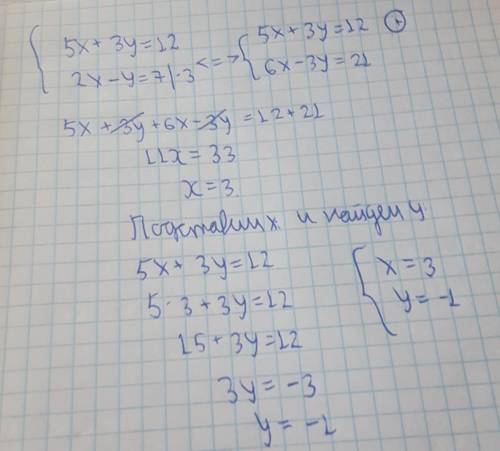 { 5x + 3y = 12 <=> { 5x + 3y = 12 (+)
2x - y = 7 | ·3 6x - 3y = 21
5x + 3y + 6x - 3y = 12 + 21
11x = 33
x = 3
Подставим x и найдем y.
5x + 3y = 12 { x = 3
5 · 3 + 3y = 12 y = -1
15 + 3y = 12
3y = -3
y = -1